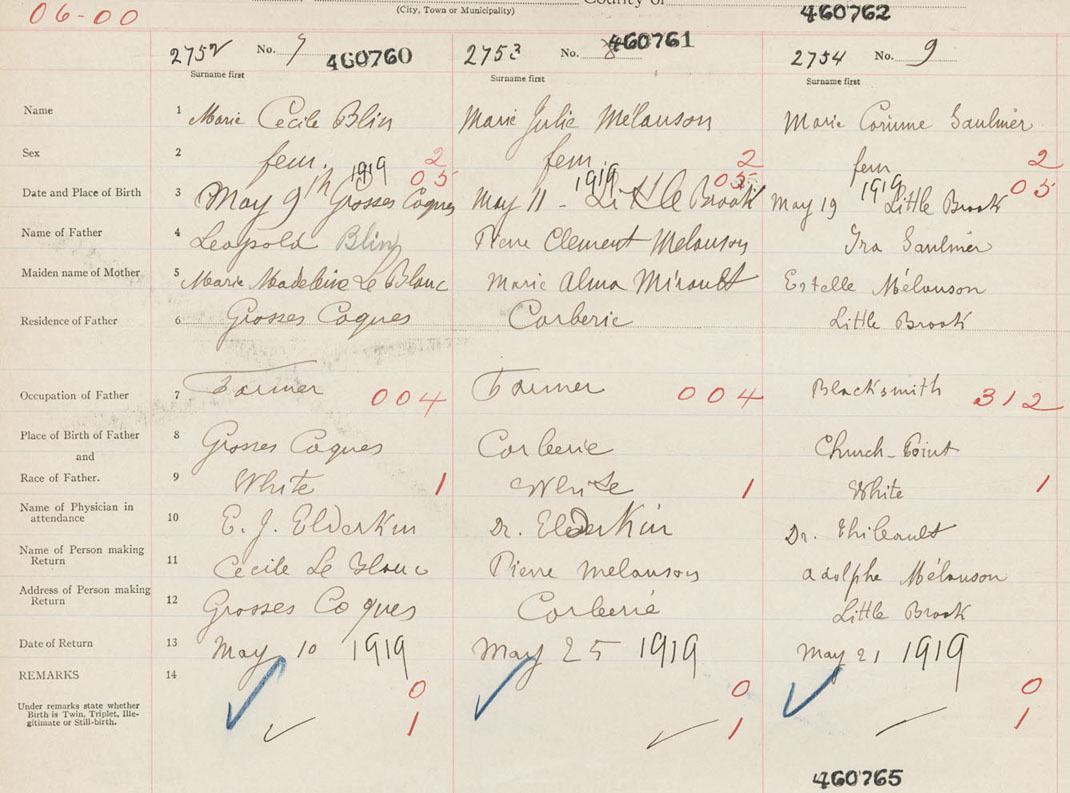 (City, Town or Municipality) County of
06-00 460762
2752 No. 7 460760 2753 No. 8 460761 2754 No. 9
Surname first Surname first Surname first
Name 1 Marie Cecile Blin Marie Julie Mélanson Marie Corinne Saulnier
Sex 2 fem. 2 fem. 2 fem 2
1919 05 1919 05 1919 05
Date and Place of Birth 3 May 9th Grosses Coques May 11 - Little Brook May 19 Little Brook
Name of Father 4 Leopold Blin Pierre Clement Melanson Ira Saulnier
Maiden name of Mother 5 Marie Madeleine Le Blanc Marie Alma Mirault Estelle Mélanson
Residence of Father 6 Grosses Coques Corberie Little Brook
Occupation of Father 7 Farmer 004 Farmer 004 Blacksmith 312
Place of Birth of Father 8 Grosses Coques Corberie Church-Point
and
Race of Father. 9 White 1 White 1 White 1
Name of Physician in
attendance 10 E. J. Elderkin Dr. Elderkin Dr. Thibault
Name of Person making
Return 11 Cecile Le Blanc Pierre Melanson Adolphe Mélanson
Address of Person making
Return 12 Grosses Coques Corberie Little Brook
Date of Return 13 May 10 1919 May 25 1919 May 21 1919
REMARKS 14 0 0 0
Under remarks state whether
Birth is Twin, Triplet, Ille-
gitimate or Still-birth. 1 1 1
460765